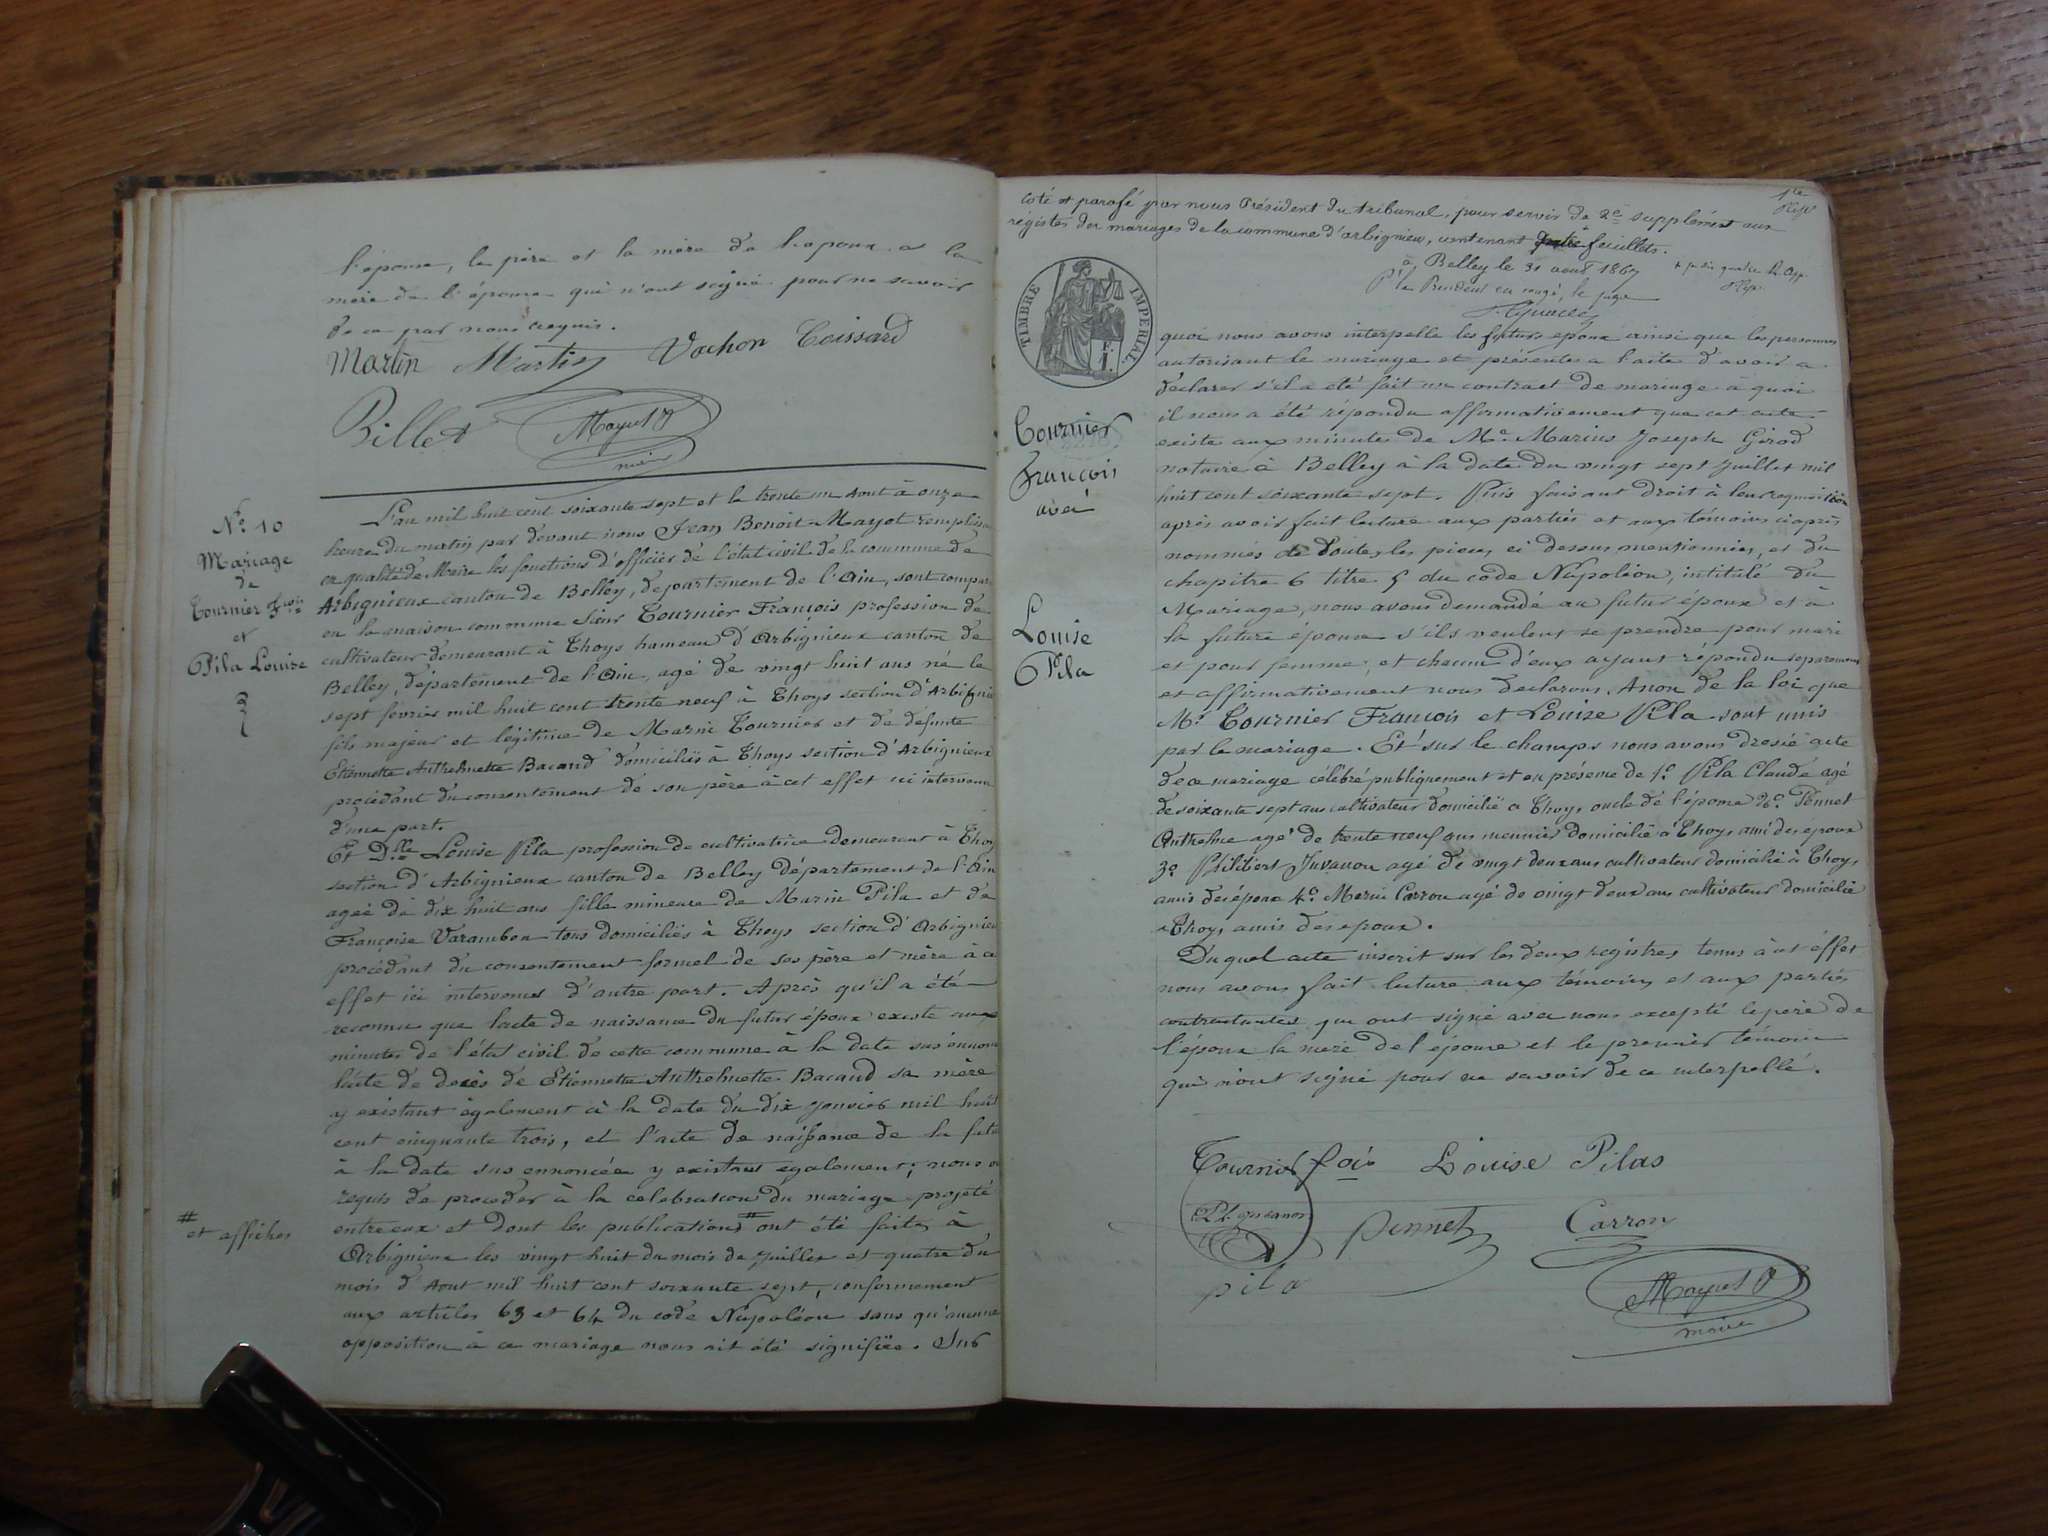 l'épouse, le père et la mère de l'epoux et la
mère de l'épouse qui n'ont signé pour ne savoir
de ce par nous requis.
Martin Martin Vachon Coissard
Billet Mayet B
maire
N° 10
Mariage
de
Tournier Fçois
et
Pila Louise
L'an mil huit cent soixante sept et le trente un Aout à onze
heure du matin par devant nous Jean Benoit Mayet remplissa
en qualité de Maire les fonctions d'officier de l'état civil de la commune de
Arbignieux canton de Belley, département de l'Ain, sont comparu
en la maison commune sieur Tournier François profession de
cultivateur demeurant à Thoys hameau d'Arbignieux canton de
Belley, département de l'Ain, agé de vingt huit ans né le
sept février mil huit cent trente neuf à Thoys section d'Arbignie
fils majeur et légitime de Marin Tournier et de défunte
Etiennette Anthelmette Bacand domiciliés à Thoys section d'Arbignieux
procédant du consentement de son père à cet effet ici intervenu
d'une part.
Et Dlle Louise Pila profession de cultivatrice demeurant à Thoy
section d'Arbignieux canton de Belley département de l'Ain
ageé de dix huit ans fille mineure de Marin Pila et de
Françoise Varambon tous domiciliés à Thoys section d'Arbignieu
procédant du consentement formel de ses père et mère à ce
effet ici intervenus d'autre part. Après qu'il a été
reconnu que l'acte de naissance du futur époux existe aux
minutes de l'état civil de cette commune à la date sus énnonc
l'acte de decès de Etiennette Anthelmette Bacand sa mère
y existant également à la date du dix janvier mil huit
cent cinquante trois, et l'acte de naissance de la futu
à la date sus ennoncée y existant egalement; nous o
requis de proceder à la celebration du mariage projeté
entre eux et dont les publications # ont été faites à
# et affiches
Arbignieux les vingt huit du mois de juillet et quatre du
mois d'Aout mil huit cent soixante sept, conformement
aux articles 63 et 64 du code Napoléon sans qu'aucune
opposition à ce mariage nous ait été signifiée. Sur
1er
Coté et parafé par nous Président du tribunal, pour servir de 2e supplément aux
régistes des mariages de la commune d'arbignieu, contenant quatre feuillets.
à Belley le 31 aout 1867
P. le Président en congé, le juge
TIMBRE IMPERIAL
Tournier
François
avec
Louise
Pila
quoi nous avons interpelle les futurs epoux ainsi que les personnes
autorisant le mariage et présentes a l'acte d'avoir a
déclarer s'il a été fait un contract de mariage à quoi
il nous a été répondu affirmativement que cet acte
existe aux minutes de Me Marius Joseph Girod
notaire à Belley à la date du vingt sept juillet mil
huit cent soixante sept. Puis faisant droit à leur requisition
après avoir fait lecture aux parties et aux témoins ciaprès
nommés de toutes les pieces ci dessus mentionnées, et du
chapitre 6 titre 5 du code Napoléon, intitulé du
Mariage, nous avons demandé au futur époux et à
la future épouse s'ils veulent se prendre pour mari
et pour femme; et chacun d'eux ayant répondu separement
et affirmativement nous déclarons Anon de la loi que
Mr Tournier François et Louise Pila sont unis
par le mariage. Et sur le champs nous avons dressé acte
de ce mariage célébré publiquement et en présense de 1° Pila Claude agé
de soixante sept ans cultivateur domicilié a Thoys oncle de l'épouse 2° Pennet
Anthelme agé de trente neuf ans meunier domicilié à Thoys ami des époux
3° Philibert Juvanon agé de vingt deux ans cultivateur domicilié à Thoys,
amis des époux 4° Marin Carron agé de vingt deux ans cultivateur domicilié
à Thoys amis des epoux.
Duquel acte inscrit sur les deux registres tenus à cet éffet
nous avons fait lecture aux témoins et aux parties
contractantes qui ont signé avec nous excepté le père de
l'époux la mere de l'épouse et le premier témoin
qui n'ont signé pour ne savoir de ce interpellé.
Tournier fois Louise Pilas
Ph juvanon Pennet Carron
pila Mayet B
maire